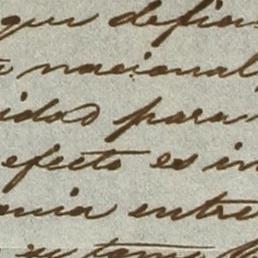 que defien
nacional
idad para
efecto es in
onia entre